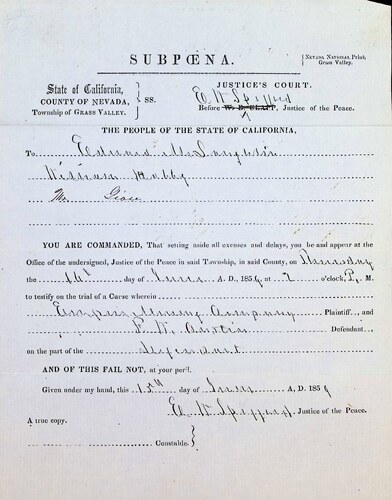 SUBPŒNA.
NEVADA NATIONAL PRINT, Grass Valley.
State of California,
COUNTY OF NEVADA,
Township of GRASS VALLEY.
SS.
JUSTICE'S COURT.
E W
Before W. D. CLAPP, Justice of the Peace.
THE PEOPLE OF THE STATE OF CALIFORNIA,
To Edward McLaughlin
William Hobby
Mr
YOU ARE COMMANDED, That setting aside all excuses and delays, you be and appear at the
Office of the undersigned, Justice of the Peace in said Township, in said County, on
the day of A. D., 185 at 2 o'clock, P. M.
to testify on the trial of a Carse wherein
Empire Mining Company Plaintiff, and
Austin Defendant
on the part of the Defendant
AND OF THIS FAIL NOT, at your peril.
Given under my hand, this 13th day of A. D. 185
E. W. Justice of the Peace.
A true copy.
Constable.